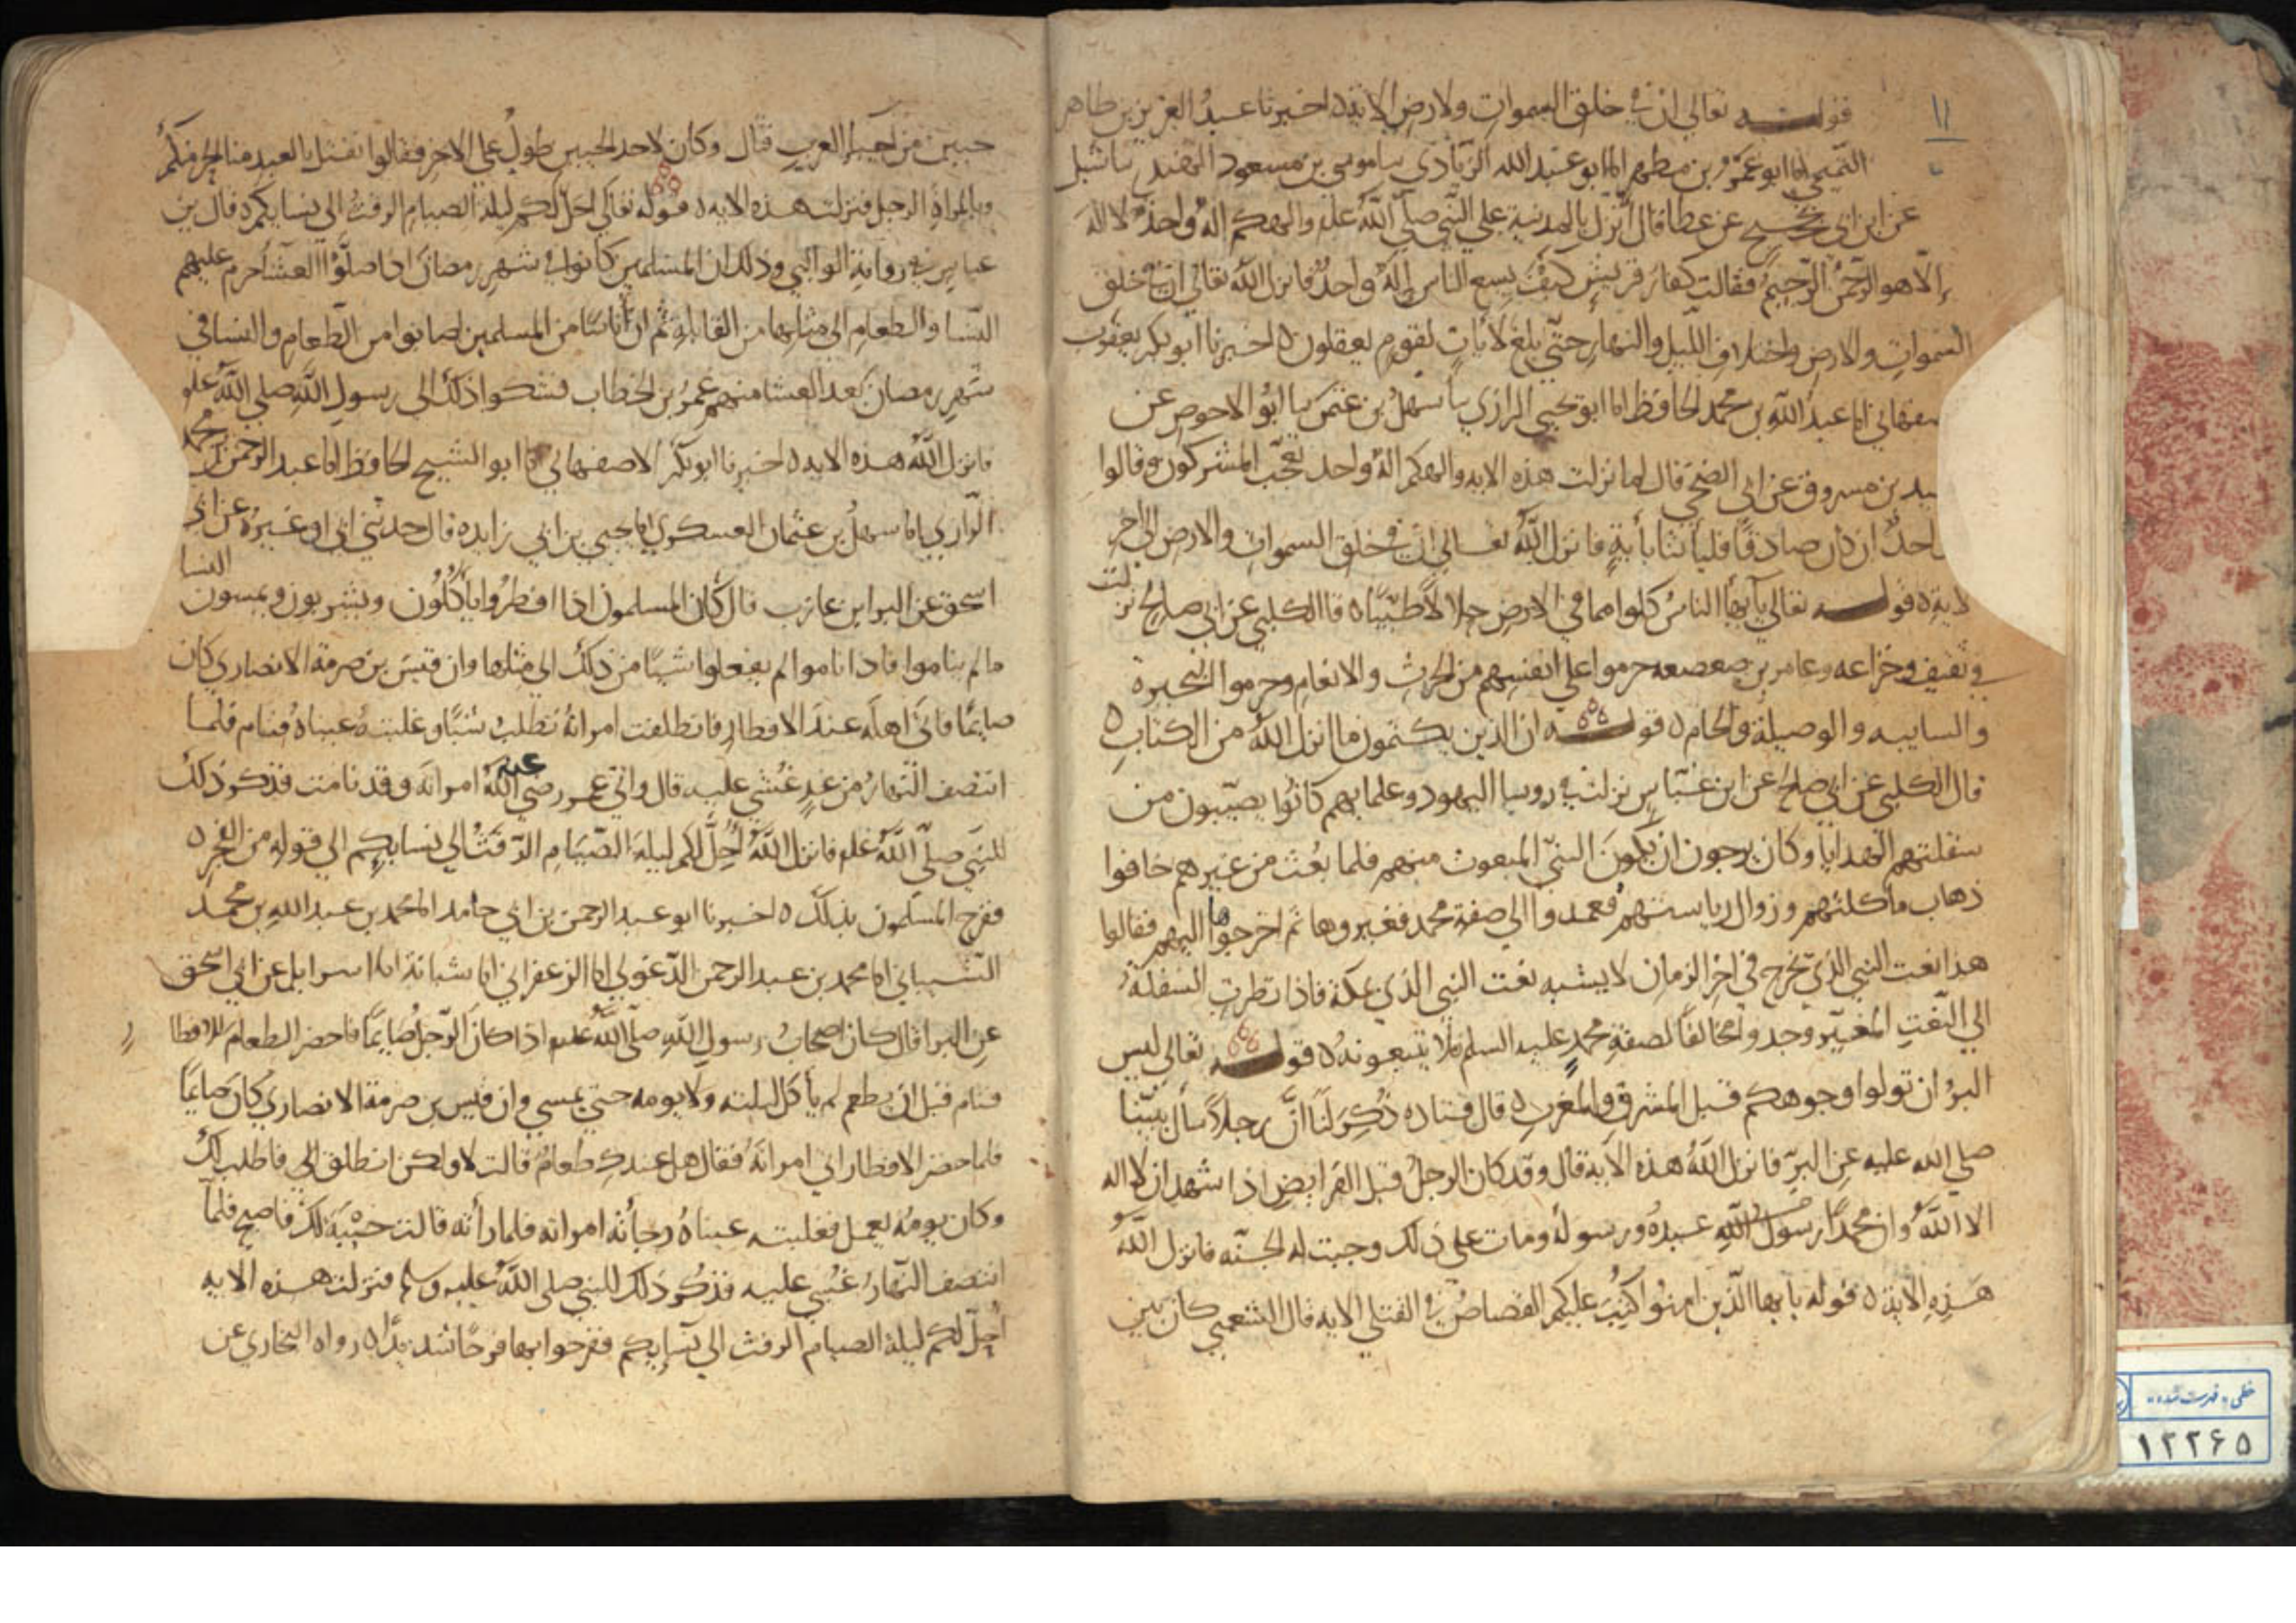 ١١
قوله تعالى ان في خلق السموات والارض الاية ٥ اخبرنا عبد العزيز بن طاهر
التميمي انا ابو عمرو بن مطهر انا ابو عبد الله الزيادي نا موسى بن مسعود النهدي نا شبل
عن ابن ابي نجيح عن عطا قال انزل بالمدينة على النبي صلى الله عليه والهكم اله واحد لا اله
إلا هو الرحمن الرحيم فقالت كفار قريش كيف يسع الناس إله واحد فانزل الله تعالى ان في خلق
السموات والارض واختلاف الليل والنهار حتى بلغ لايات لقوم يعقلون ٥ اخبرنا ابو بكر
صفهاني انا عبد الله بن محمد الحافظ انا ابو يحيى الرازي نا سهل بن عثمن نا ابو الاحوص عن
سعيد بن مسروق عن ابي الضحى قال لما نزلت هذه الايه والهكم اله واحد تعجب المشركون وقالوا
احد ان كان صادقا فلياتنا بأية فانزل الله تعالى ان في خلق السموات والارض الى اخر
لاية ٥ قوله تعالى يأيها الناس كلوا مما في الارض حلالا طيبا ٥ قال الكلبي عن ابي صالح نزلت
في ثقيف وخزاعه وعامر بن صعصعه حرموا على انفسهم من الحرث والانعام وحرموا البحيرة
والسايبه والوصيلة والحام ٥ قوله ان الذين يكتمون ما انزل الله من الكتاب ٥
قال الكلبي عن ابي صالح عن ابن عباس نزلت في روسا اليهود وعلمايهم كانوا يصيبون من
سفلتهم الهدايا وكان يرجون ان يكون النبي المبعوث منهم فلما بعث من غيرهم خافوا
ذهاب مأكلتهم وزوال رياستهم فعمدوا الى صفة محمد فغيروها ثم اخرجوها اليهم فقالوا
هذا نعت النبي الذي يخرج في اخر الزمان لا يشبه نعت النبي الذي بمكة فاذا نظرت السفلة
الى النعت المغير وجدوا مخالفا لصفة محمد عليه السلم فلا يتبعونه ٥ قوله تعالى ليس
البر ان تولوا وجوهكم قبل المشرق والمغرب ٥ قال قتاده ذكر لنا ان رجلا سأل نبينا
صلى الله عليه عن البر فانزل الله هذه الاية قال وقد كان الرجل قبل الفرايض اذا شهد ان لا اله
الا الله وان محمدا رسول الله عبده ورسوله ومات على ذلك وجبت له الجنه فانزل الله
هذه الاية ٥ قوله يايها الذين امنوا كتب عليكم القصاص في القتلى الايه قال الشعبي كان بين
حيين من احيا العرب قال وكان لاحد الحيين طول على الاخر فقالوا نقتل بالعبد منا الحر منكم
وبالمراة الرجل فنزلت هذه الايه ٥ قوله تعالى احل لكم ليلة الصيام الرفث الى نسايكم ٥ قال بن
عباس في رواية الوالبي وذلك ان المسلمين كانوا في شهر رمضان اذا صلوا العشا حرم عليهم
النسا والطعام الى مثلها من القابلة ثم ان أناسا من المسلمين اصابوا من الطعام والنسا في
شهر رمضان بعد العشا منهم عمر بن الخطاب فشكوا ذلك الى رسول الله صلى الله عليه
فانزل الله هذه الايه ٥ اخبرنا ابو بكر الاصفهاني انا ابو الشيخ الحافظ انا عبد الرحمن بن محمد
الرازي انا سهل بن عثمان العسكري انا يحيى بن ابي زايده قال حدثني ابي او غيره عن ابي
اسحق عن البرا بن عازب قال كان المسلمون اذا افطروا ياكلون ويشربون ويمسون النسا
ما لم يناموا فاذا ناموا لم يفعلوا شيا من ذلك الى مثلها وان قيس بن صرمة الانصاري كان
صايما فاتى اهله عند الافطار فانطلقت امراته تطلب شيا وغلبته عيناه فنام فلما
انتصف النهار من غد غشي عليه قال واتى عمر رضي الله عنه امراته وقد نامت فذكر ذلك
للنبي صلى الله عليه فانزل الله احل لكم ليلة الصيام الرفث الى نسايكم الى قوله من الفجر ٥
ففرح المسلمون بذلك ٥ اخبرنا ابو عبد الرحمن بن ابي حامد انا محمد بن عبد الله بن محمد
الشيباني انا محمد بن عبد الرحمن الدغولي انا الزعفراني انا شبابة انا اسرايل عن ابي اسحق
عن البرا قال كان اصحاب رسول الله صلى الله عليه اذا كان الرجل صايما فاحضر الطعام للافطار
فنام قبل ان يطعم لم يأكل ليلته ولا يومه حتى يمسي وان قيس بن صرمة الانصاري كان صايما
فلما حضر الافطار اتى امراته فقال هل عندك طعام قالت لا ولكن انطلق الى فاطلب لك
وكان يومه يعمل فغلبته عيناه وجأته امراته فلما رأته قالت خيبة لك فاصبح فلما
انتصف النهار غشي عليه فذكر ذلك للنبي صلى الله عليه وسلم فنزلت هذه الايه
احل لكم ليلة الصيام الرفث الى نسايكم ففرحوا بها فرحا شديدا ٥ رواه البخاري عن
خطی «فهرست شده»
١٢٢۶۵